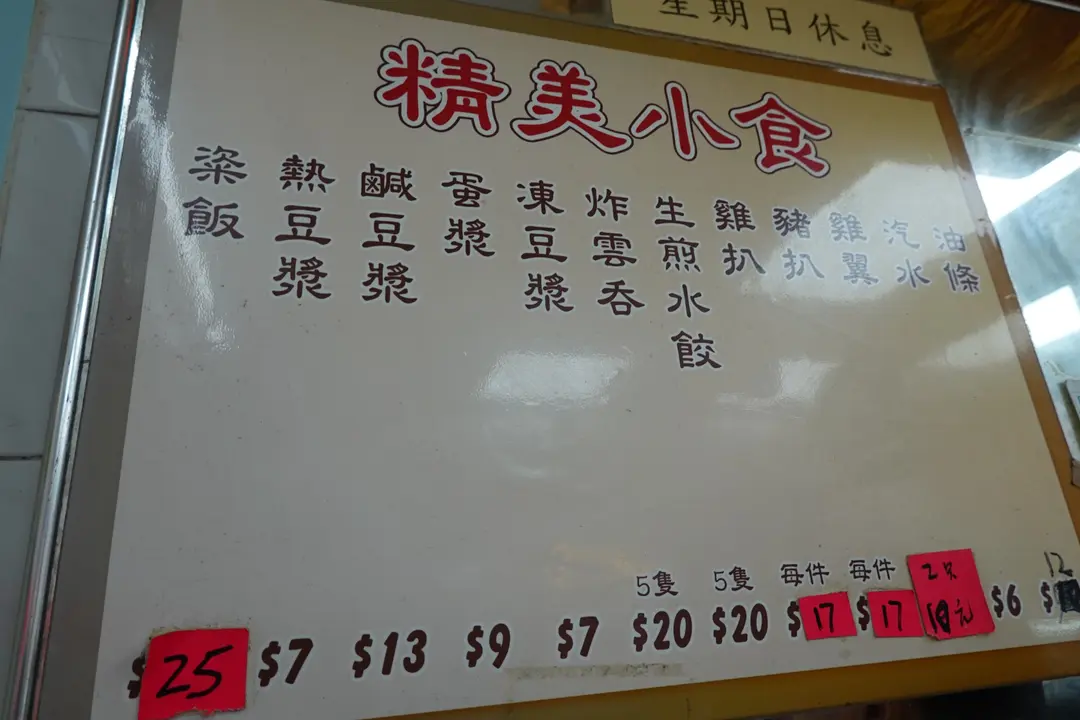 星期日休息
精美小食
粢飯
熱豆漿
鹹豆漿
蛋漿
凍豆漿
炸雲吞
生煎水餃
雞扒
豬扒
雞翼
汽水
油條
5隻
5隻
每件
每件
2只
12
$25
$7
$13
$9
$7
$20
$20
$17
$17
元
$6
$